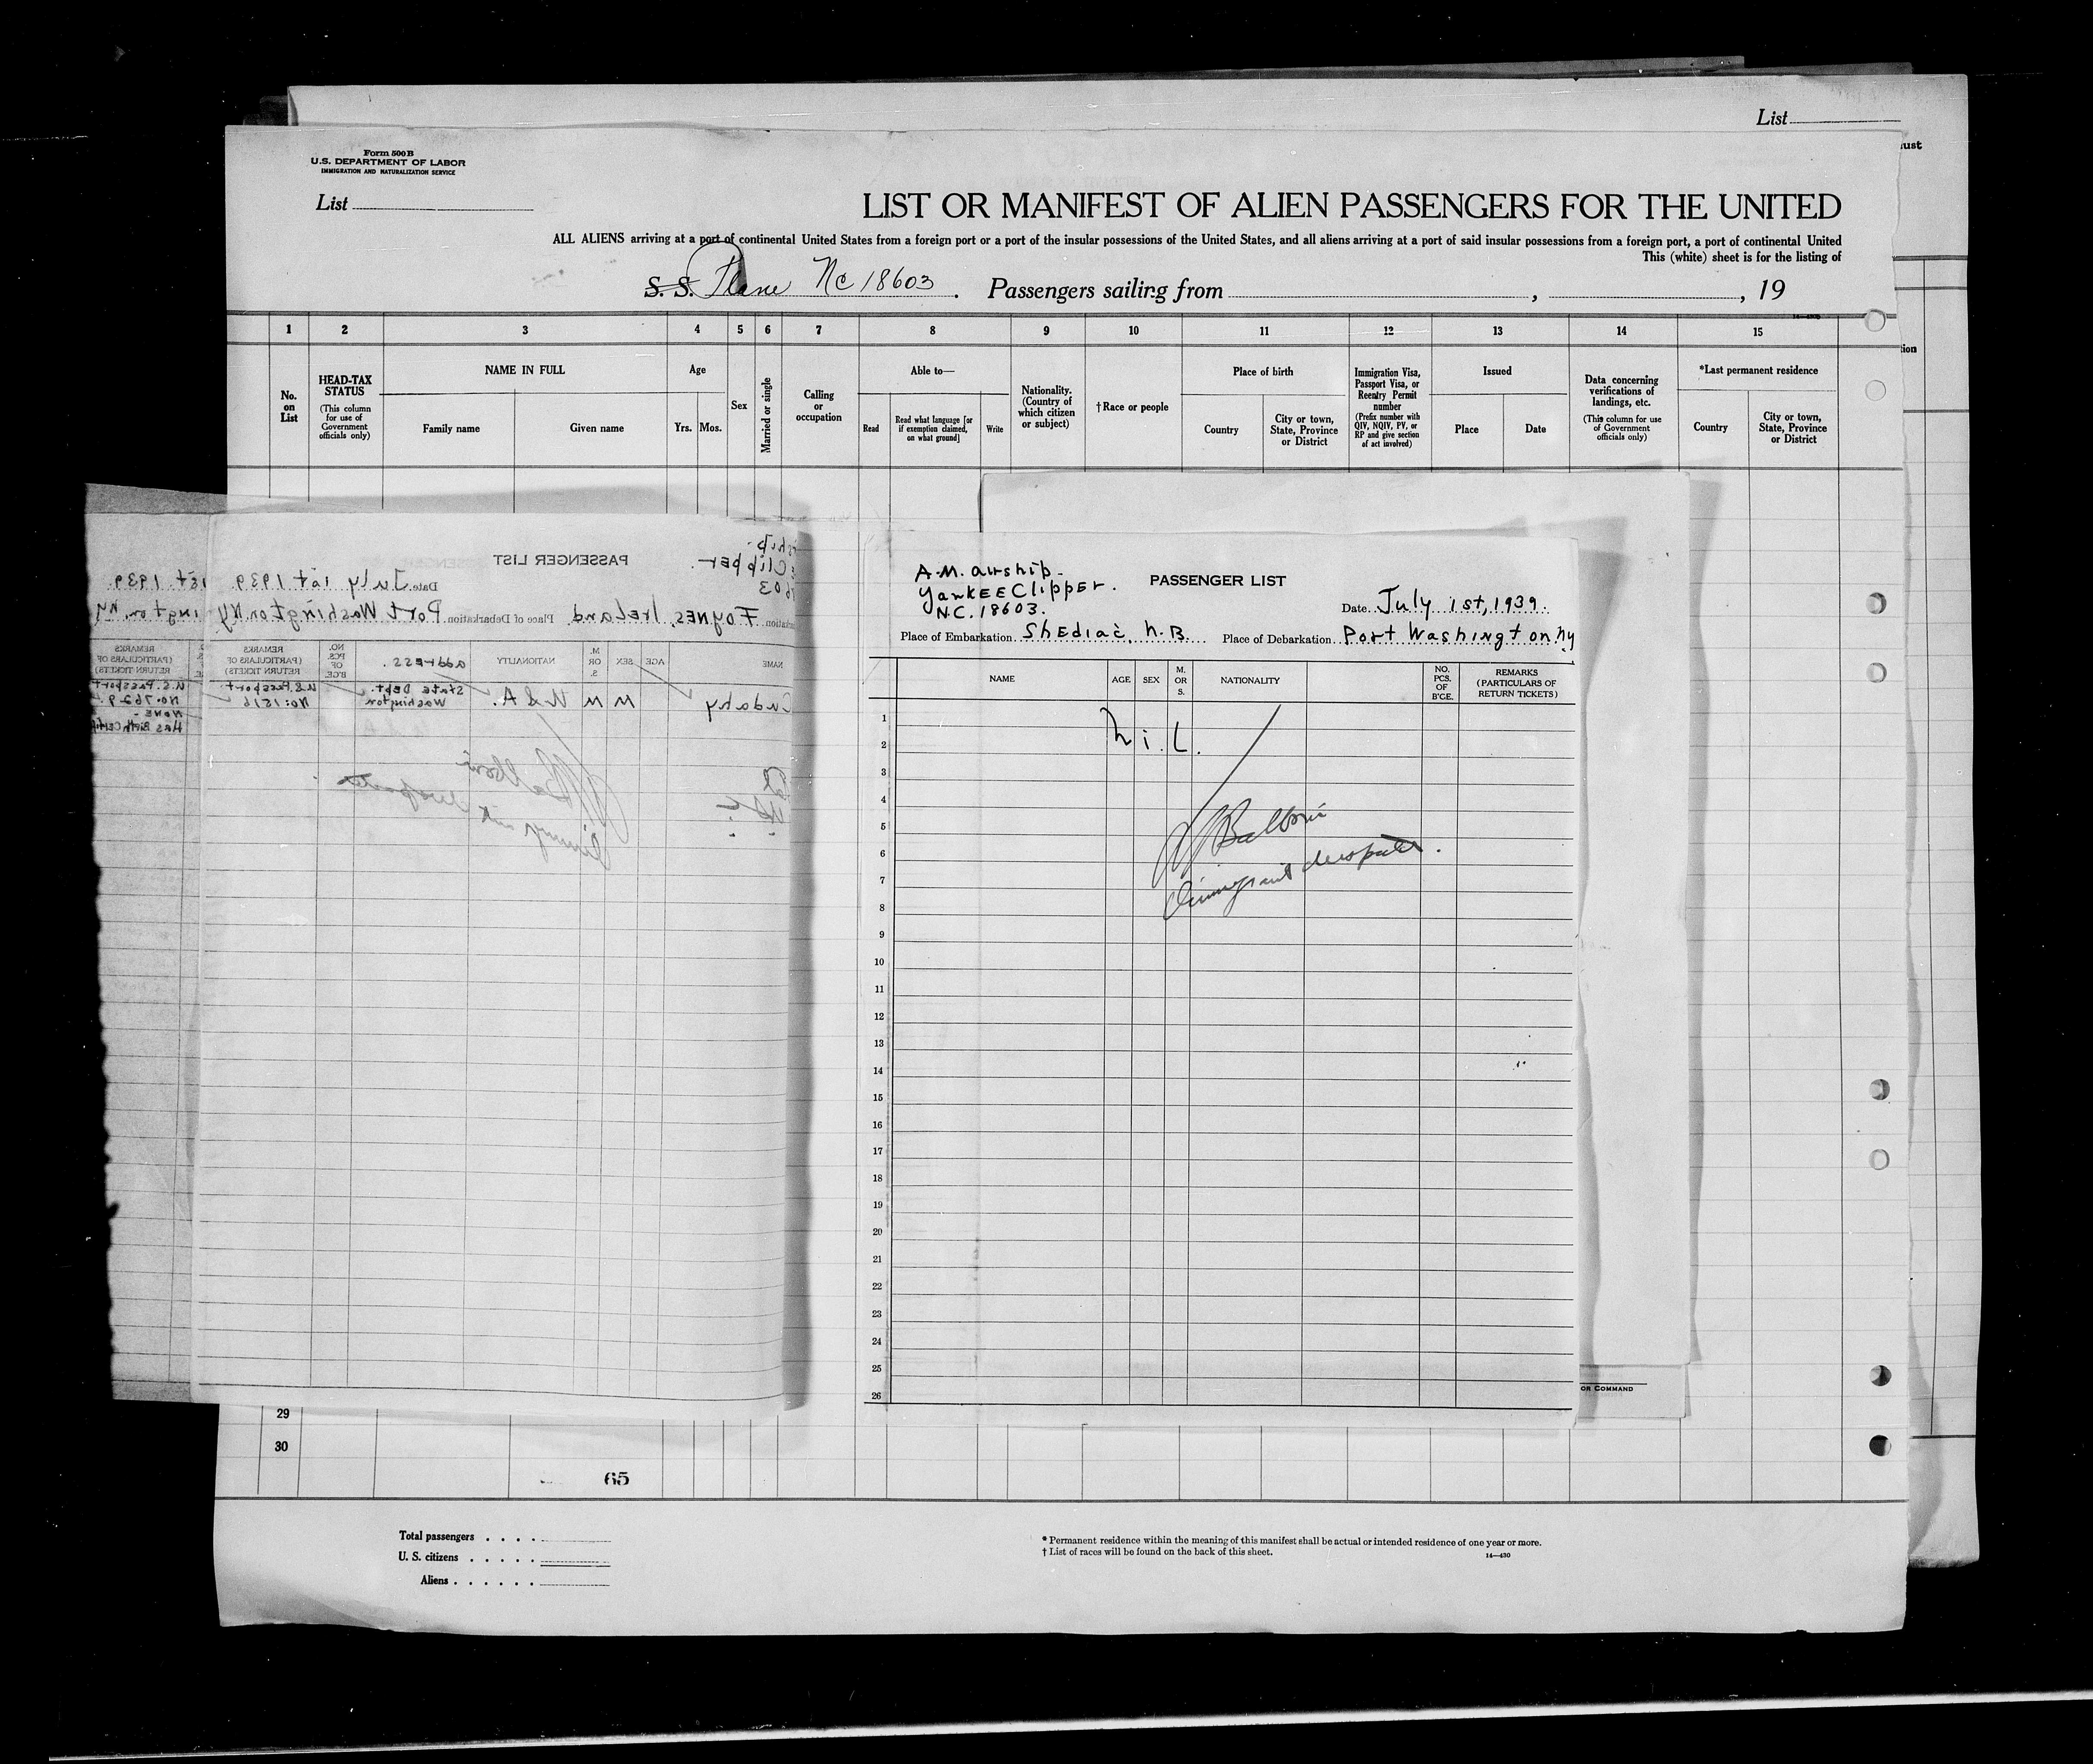 List
ust
Form 500B
U.S. DEPARTMENT OF LABOR
IMMIGRATION AND NATURALIZATION SERVICE
List
LIST OR MANIFEST OF ALIEN PASSENGERS FOR THE UNITED
ALL ALIENS arriving at a port of continental United States from a foreign port or a port of the insular possessions of the United States, and all aliens arriving at a port of said insular possessions from a foreign port, a port of continental United
This (white) sheet is for the listing of
S. S. Plane Nc 18603. Passengers sailing from , , 19
1 2 3 4 5 6 7 8 9 10 11 12 13 14 15
tion
No. on List
HEAD-TAX STATUS
(This column for use of Government officials only)
NAME IN FULL
Family name
Given name
Age
Yrs. Mos.
Sex
Married or single
Calling or occupation
Able to—
Read
Read what language [or if exemption claimed, on what ground]
Write
Nationality. (Country of which citizen or subject)
†Race or people
Place of birth
Country
City or town, State, Province or District
Immigration Visa, Passport Visa, or Reentry Permit number
(Prefix number with QIV, NQIV, PV, or RP and give section of act involved)
Issued
Place
Date
Data concerning verifications of landings, etc.
(This column for use of Government officials only)
*Last permanent residence
Country
City or town, State, Province or District
PASSENGER LIST
Clipper.
Date July 1st 1939
Foynes, Ireland Place of Debarkation Port Washington NY
NAME
AGE
SEX
M. OR S.
NATIONALITY
address.
NO. PCS. OF B'GE.
REMARKS (PARTICULARS OF RETURN TICKETS)
Cudahy M M U S A. State Dept. Washington U.S. Passport No: 1516
1st. 1939
ington, NY
REMARKS (PARTICULARS OF RETURN TICKETS)
U.S. Passport
No. 7629
NONE -
Has Birth Certif
A.M. airship-
Yankee Clipper.
N.C. 18603.
PASSENGER LIST
Date July 1st, 1939.
Place of Embarkation Shediac, N.B. Place of Debarkation Port Washington NY
NAME
AGE
SEX
M. OR S.
NATIONALITY
NO. PCS. OF B'GE.
REMARKS (PARTICULARS OF RETURN TICKETS)
1
Nil.
2
3
4
5
6
7
8
9
10
11
12
13
14
15
16
17
18
19
20
21
22
23
24
25
26
OR COMMAND
29
30
65
Total passengers
U. S. citizens
Aliens
* Permanent residence within the meaning of this manifest shall be actual or intended residence of one year or more.
† List of races will be found on the back of this sheet.
14—430